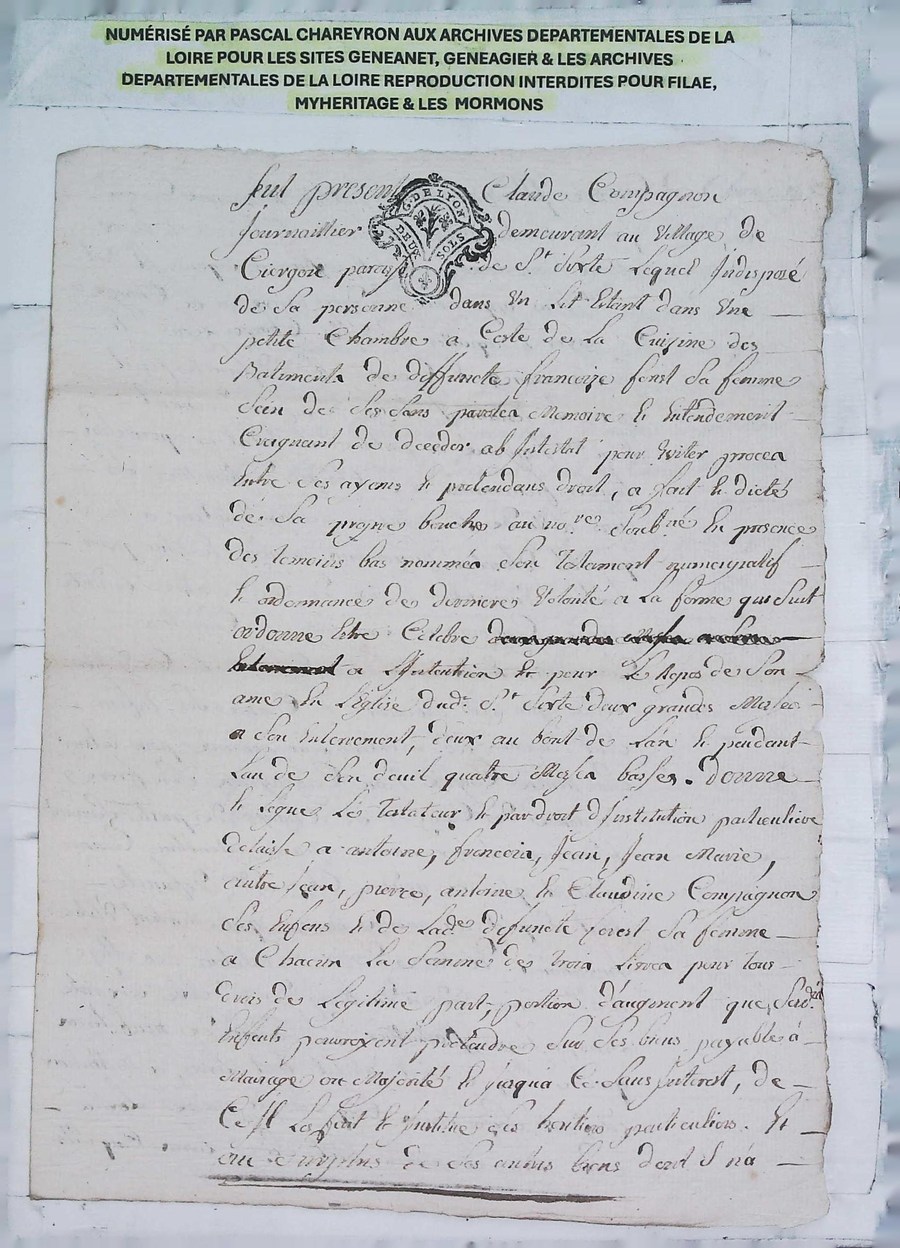 NUMÉRISÉ PAR PASCAL CHAREYRON AUX ARCHIVES DEPARTEMENTALES DE LA
LOIRE POUR LES SITES GENEANET, GENEAGIER & LES ARCHIVES
DEPARTEMENTALES DE LA LOIRE REPRODUCTION INTERDITES POUR FILAE,
MYHERITAGE & LES MORMONS
fut present Claude Compagnon
G. DE LYON
DEUX SOLS
journaillier demeurant au Village de
Ciergoue paroisse de St. Sixte lequel Indisposé
de Sa personne dans Un Lit Estant dans Une
petite Chambre a Coste de La Cuisine des
Batiments de deffuncte francoize forest Sa femme
Sain de Ses Sans parolea Memoire et Entendement
Craignant de deceder ab Intestat pour Eviter procea
Entre Ses ayans et pretendans droit, a fait et dicté
de Sa propre bouche au nore. Soubné En presence
des temoins bas nommés Son Testament numcupatif
et ordonnance de derniere Volonté a La forme qui Suit
ordonne Estre Celebre
a L'Intention et pour Le Repos de Son
ame En L'Eglise dudt. St. Sixte deux grandes Messes
a Son Enterrement, deux au bout de L'an et pendant
L'an de Son deuil quatre Messes basses. donne
et Legue Le Testateur et par droit d'Institution particuliere
delaisse a antoine, francois, Jean, Jean Marie,
autre Jean, pierre, antoine et Claudine Compagnon
Ses Enfens et de Lade. defuncte forest Sa femme
a Chacun La Somme de trois Livres pour tous
drois de Legitime part, portion d'augment que Sesdt.
Enffents pourroyent pretendre Sur Ses biens payable à
Mariage ou Majorité et jusqua Ce Sans Interest, de
Ce Il Les fait et Institue Ses heritiers particuliers. Et
au Surplus de Ses autres biens dont Il na